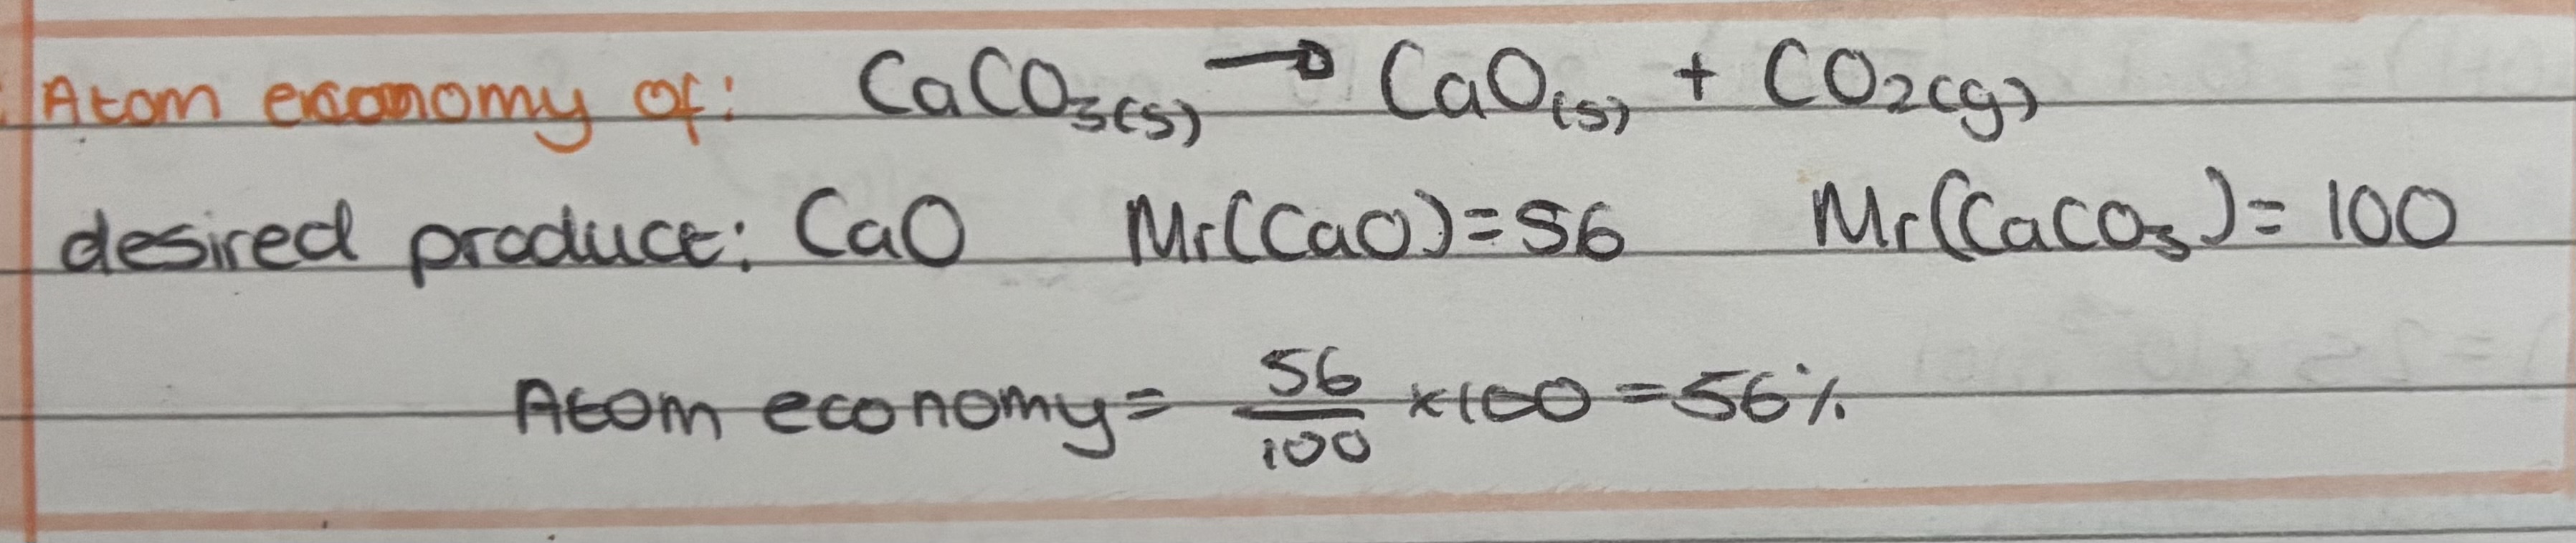 Atom economy of: CaCO₃(s) → CaO(s) + CO₂(g)
desired product: CaO Mr(CaO)=56 Mr(CaCO₃)= 100
Atom economy= 56/100 ×100 =56%